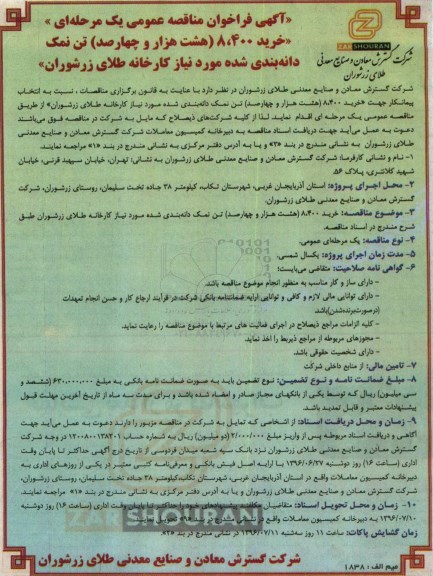 «آگهی فراخوان مناقصه عمومی یک مرحله‌ای»
«خرید ۸،۴۰۰ (هشت هزار و چهارصد) تن نمک
دانه‌بندی شده مورد نیاز کارخانه طلای زرشوران»
ZARSHOURAN
شرکت گسترش معادن و صنایع معدنی
طلای زرشوران
شرکت گسترش معادن و صنایع معدنی طلای زرشوران در نظر دارد با عنایت به قانون برگزاری مناقصات، نسبت به انتخاب
پیمانکار جهت «خرید ۸،۴۰۰ (هشت هزار و چهارصد) تن نمک دانه‌بندی شده مورد نیاز کارخانه طلای زرشوران» از طریق
مناقصه عمومی یک مرحله ای اقدام نماید. لذا از کلیه شرکت‌های ذیصلاح که مایل به شرکت در مناقصه فوق می‌باشند
دعوت به عمل می‌آید جهت دریافت اسناد مناقصه به دبیرخانه کمیسیون معاملات شرکت گسترش معادن و صنایع معدنی
طلای زرشوران به نشانی مندرج در بند «۲» و یا به آدرس دفتر مرکزی به نشانی مندرج در بند «۱» مراجعه نمایند.
۱- نام و نشانی کارفرما: شرکت گسترش معادن و صنایع معدنی طلای زرشوران به نشانی: تهران، خیابان سپهبد قرنی، خیابان
شهید کلانتری، پلاک ۵۶.
۲- محل اجرای پروژه: استان آذربایجان غربی، شهرستان تکاب، کیلومتر ۲۸ جاده تخت سلیمان، روستای زرشوران، شرکت
گسترش معادن و صنایع معدنی طلای زرشوران.
۳- موضوع مناقصه: خرید ۸،۴۰۰ (هشت هزار و چهارصد) تن نمک دانه‌بندی شده مورد نیاز کارخانه طلای زرشوران طبق
شرح مندرج در اسناد مناقصه.
۴- نوع مناقصه: یک مرحله‌ای عمومی.
۵- مدت زمان اجرای پروژه: یکسال شمسی.
۶- گواهی نامه صلاحیت: متقاضی می‌بایست:
- دارای ساز و کار مناسب به منظور انجام موضوع مناقصه باشد.
- دارای توانایی مالی لازم و کافی و توانایی ارایه ضمانتنامه بانکی شرکت در فرآیند ارجاع کار و حسن انجام تعهدات
(درصورت برنده شدن) باشد.
- کلیه الزامات مراجع ذیصلاح در اجرای فعالیت های مرتبط با موضوع مناقصه را رعایت نماید.
- مجوزهای مربوطه از مراجع ذیربط را اخذ نماید.
- دارای شخصیت حقوقی باشد.
۷- تامین مالی: از منابع داخلی شرکت
۸- مبلغ ضمانت نامه و نوع تضمین: نوع تضمین باید به صورت ضمانت نامه بانکی به مبلغ ۶۳۰،۰۰۰،۰۰۰ (ششصد و
سی میلیون) ریال که توسط یکی از بانکهای مجاز صادر و امضاء شده باشد و برای مدت سه ماه از تاریخ آخرین مهلت قبول
پیشنهادات معتبر و قابل تمدید باشد.
۹- زمان و محل دریافت اسناد: از اشخاصی که تمایل به شرکت در مناقصه مزبور را دارند دعوت به عمل می‌آید جهت
آگاهی و دریافت اسناد مربوطه پس از واریز مبلغ ۲/۰۰۰/۰۰۰ (دو میلیون) ریال به شماره حساب ۱۲۰۰۸۰۰۱۳۸۲۰۱ در وجه شرکت
گسترش معادن و صنایع معدنی طلای زرشوران نزد بانک سپه شعبه میدان فردوسی از تاریخ درج آگهی حداکثر تا پایان وقت
اداری (ساعت ۱۶) روز دوشنبه ۱۳۹۶/۰۶/۲۷ با ارایه اصل فیش بانکی و معرفی‌نامه کتبی معتبر در یکی از روزهای اداری به
دبیرخانه کمیسیون معاملات واقع در استان آذربایجان غربی، شهرستان تکاب، کیلومتر ۲۸ جاده تخت سلیمان، روستای زرشوران،
شرکت گسترش معادن و صنایع معدنی طلای زرشوران و یا به آدرس دفتر مرکزی به نشانی مندرج در بند «۱» مراجعه نمایند.
۱۰- زمان و محل تحویل اسناد: متقاضیان تا پایان وقت اداری (ساعت ۱۶) روز دوشنبه
۱۳۹۶/۰۷/۱۰ به دبیرخانه کمیسیون معاملات واقع در نشانی
زمان گشایش پاکات: ساعت ۱۱ روز سه‌شنبه ۱۳۹۶/۰۷/۱۱ در نشانی مندرج در بند «۲».
شرکت گسترش معادن و صنایع معدنی طلای زرشوران
میم الف: ۱۸۳۸